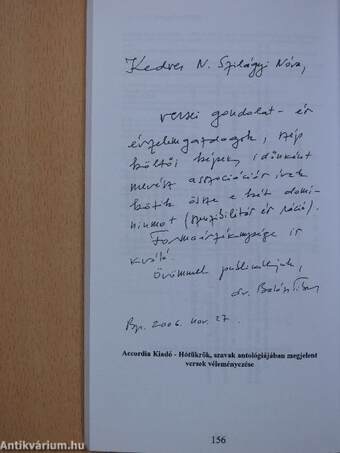 Kedves N. Szilágyi Nóra,
versei gondolat- és
érzelemgazdagok, szép
költői képek, időnként
merész asszociációs ívek
kötik össze e két domi-
ninmot (szenzibilitás és ráció).
Formaérzéknysége is
kiváló
Örömmel publikáljuk,
dr. Balázs Tibor
Bp. 2006. nov. 27.
Accordia Kiadó - Hótükrök, szavak antológiájában megjelent
versek véleményezése
156
Antikvárium.hu